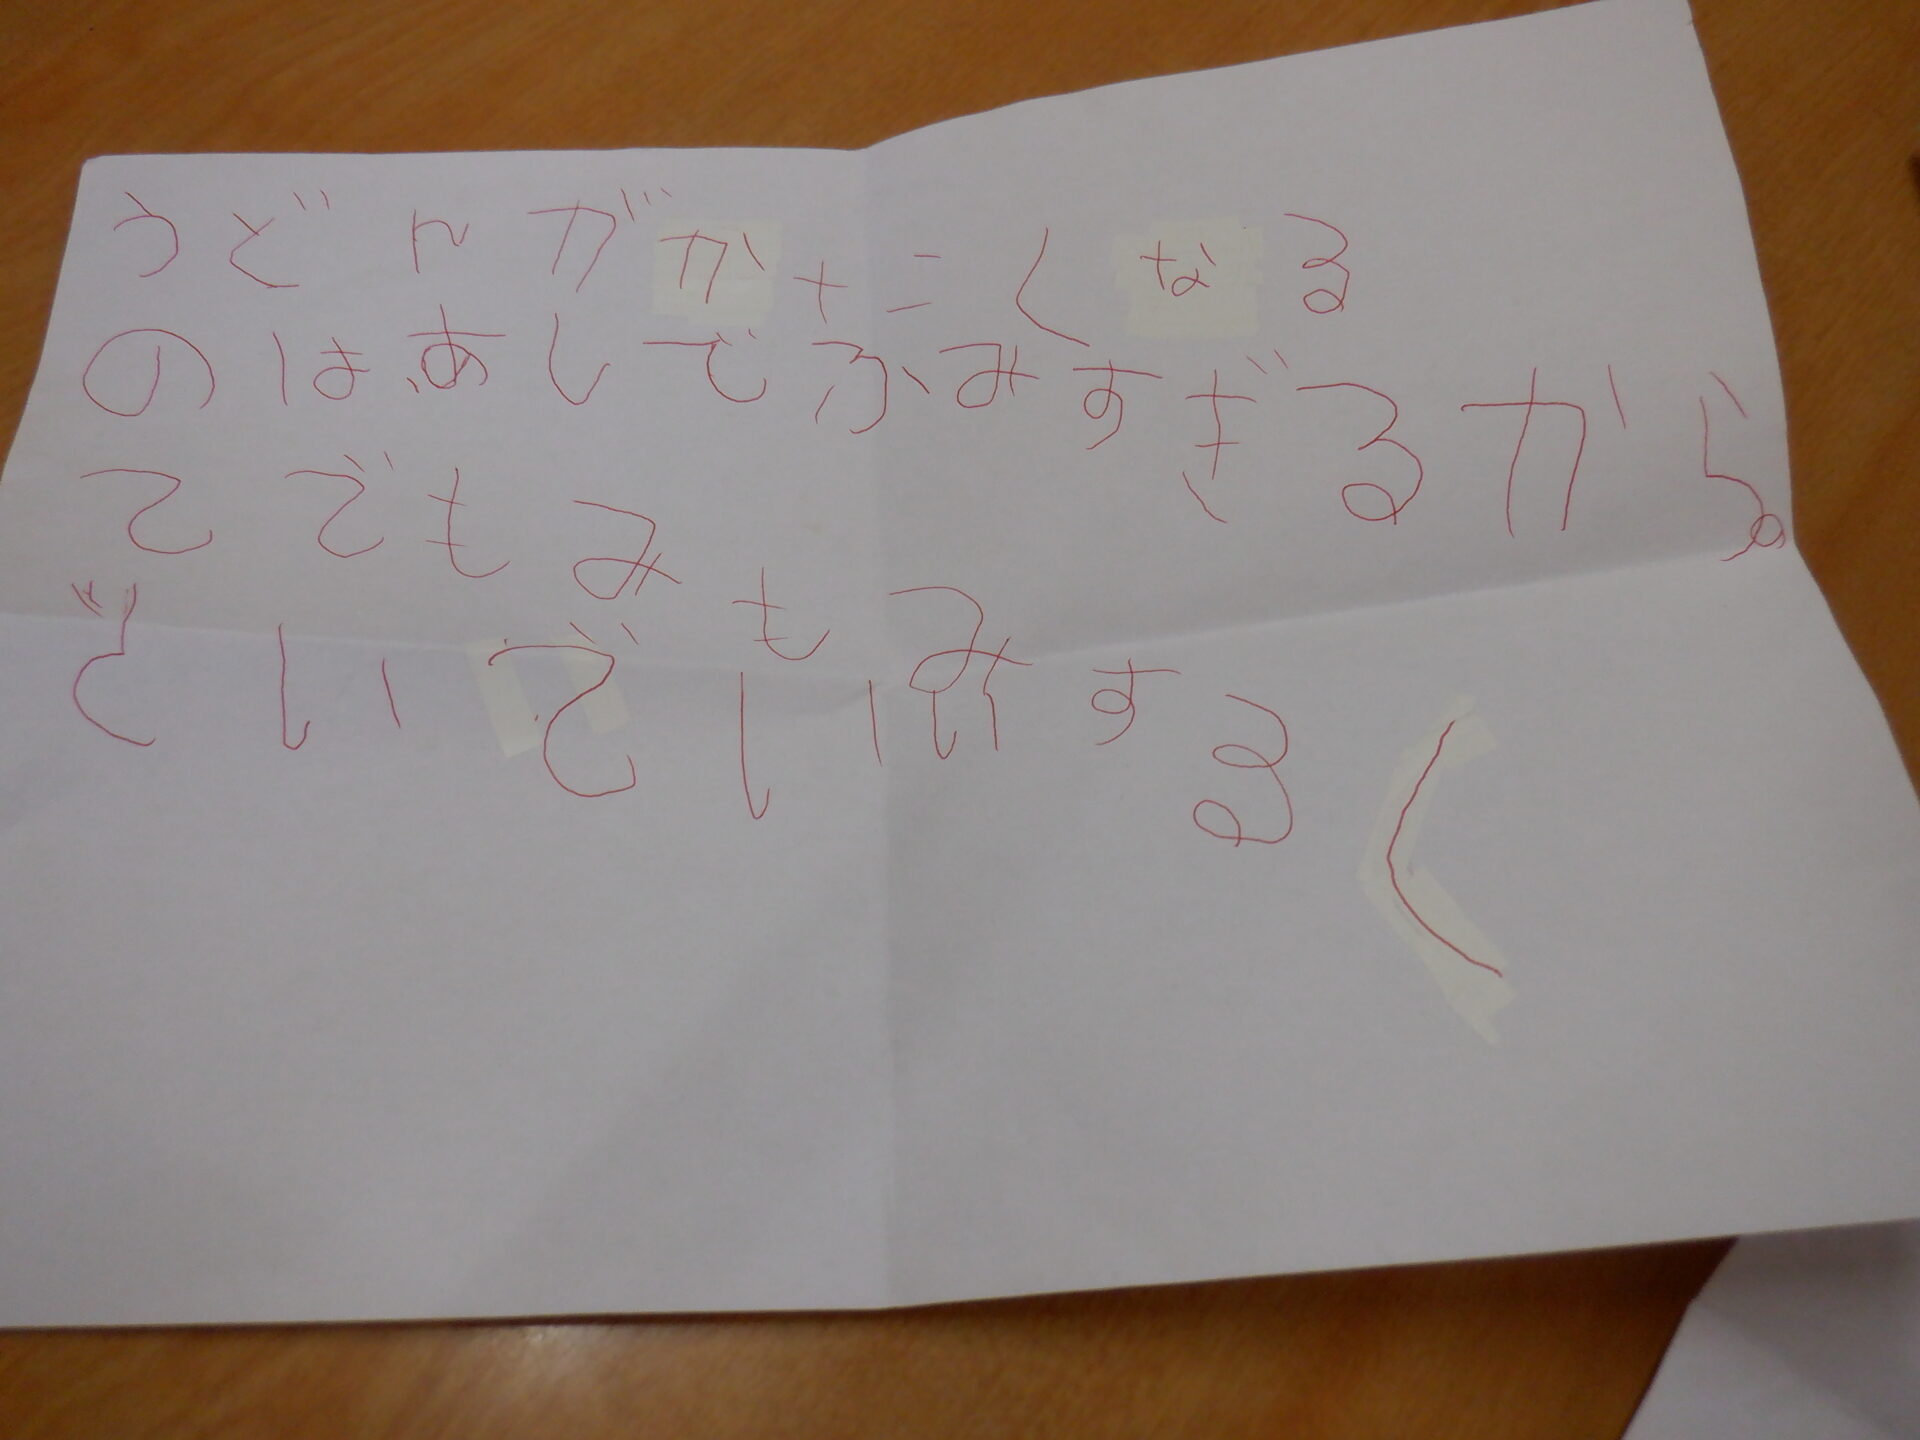 うどんががたこくなる
のはあしでふみすぎるから。
てでもみもみ
どいでいいするく